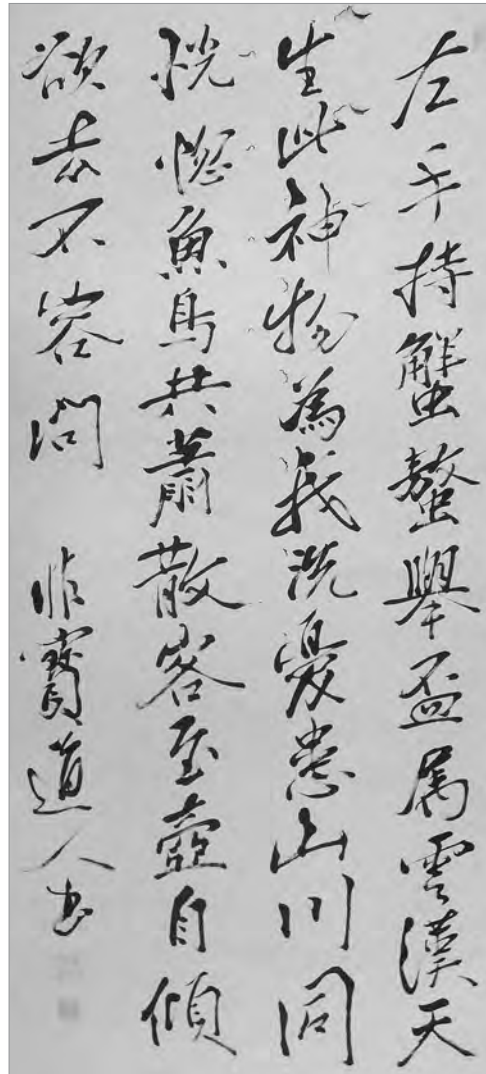 左手持蟹螯舉盃属雲漢天
生此神物為我洗憂患山川同
恍惚魚鳥共蕭散客至壺自傾
欲去不容 寶道人書